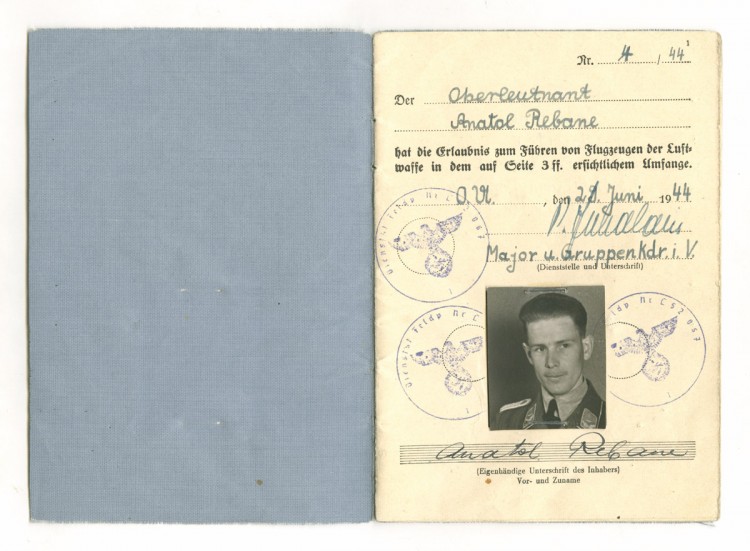 Nr. 4 / 44
Der Oberleutnant
Anatol Rebane
hat die Erlaubnis zum Führen von Flugzeugen der Luft-
waffe in dem auf Seite 3 ff. ersichtlichem Umfange.
O.U. , den 28. Juni 1944
Major u. Gruppenkdr. i. V.
(Dienststelle und Unterschrift)
Dienstst. Feldp Nr
Dienstst. Feldp Nr
Anatol Rebane
(Eigenhändige Unterschrift des Inhabers)
Vor- und Zuname